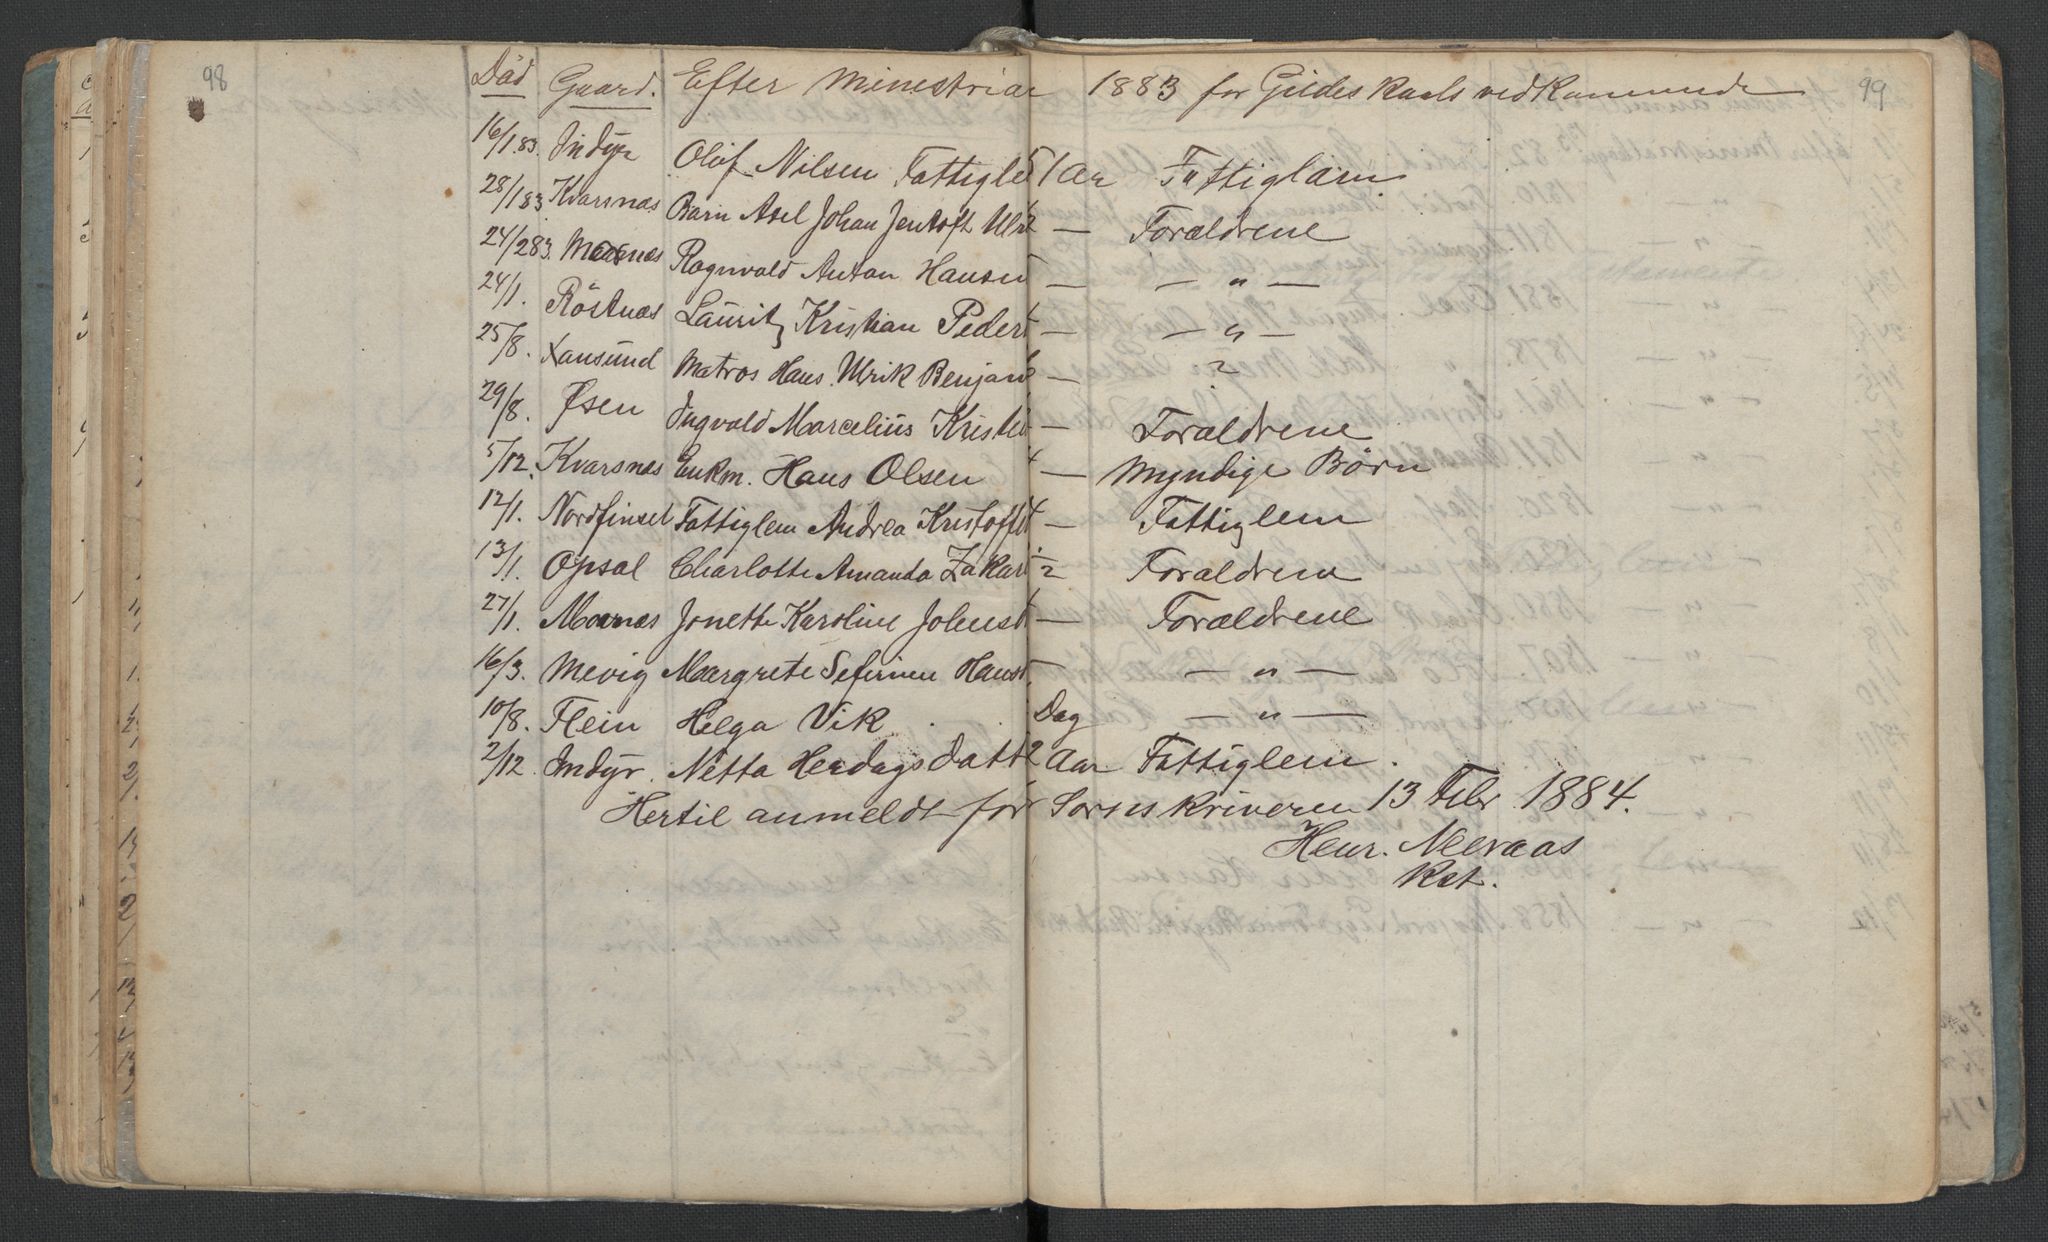 98
99
Död Gaard. Efter Minestriar 1883 for Gildeskaals vedkommende
16/1.83. Indyr Olöf Nilsen Fattigle 51 Aar Fattiglem
28/183 Kvarsnæs Barn Axel Johan Jentoft Ulr — Foraldrene
24/283. Maarnæs Ragnvald Anton Hansen — — " —
24/1. Röstnæs Lauritz Kristian Peders — — " —
25/8. Xansund Matros Hans Ulrik Benjam — ?
29/8. Øsen Ingvald Marcelius Kristia — Foraldrene
5/12. Kvarsnæs Enkm. Haus Olsen — Myndige Börn
12/1. Nordfinset Fattiglem Andrea Kristoffe — Fattiglem
13/1. Opsal Charlotte Amanda Zakari ½ Foraldrene
27/1. Maarnæs Jonette Karoline Johns — Foræeldrene
16/3. Mevig Margrete Sefirine Hans — " —
10/8. Flein Helga Vik Dag — " —
2/12. Indyr. Netta Herdags datt 2 Aar Fattiglem.
Hertil anmeldt for Sorenskriveren 13 Febr 1884.
Henr. Neeraas
Kst.